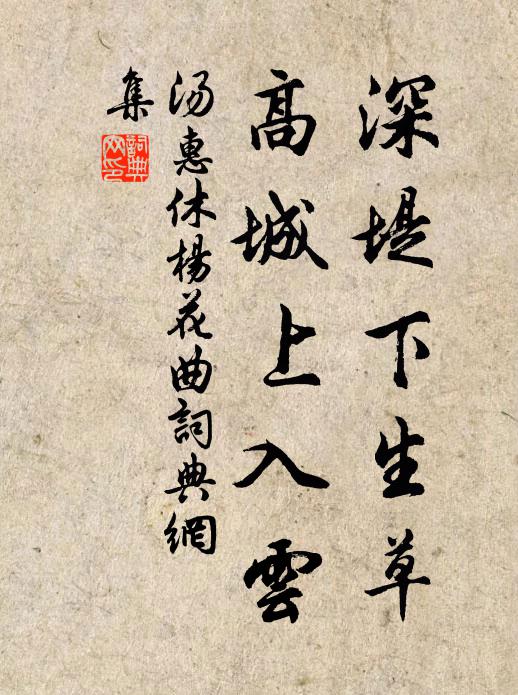 深堤下生草
高城上入雲
湯惠休楊花曲詞典網
集
詞典
网印